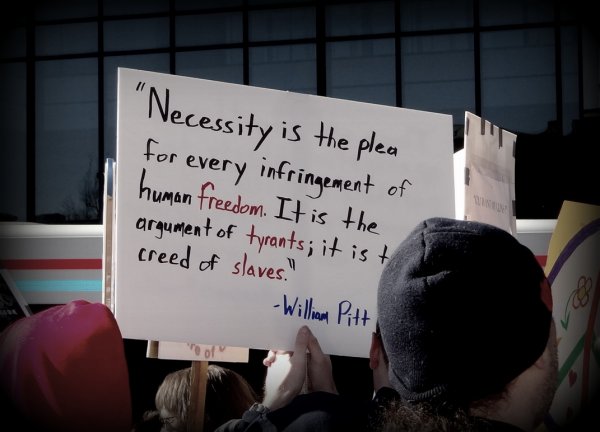 "Necessity is the plea
for every infringement of
human freedom. It is the
argument of tyrants; it is t
creed of slaves."
-William Pitt
e of